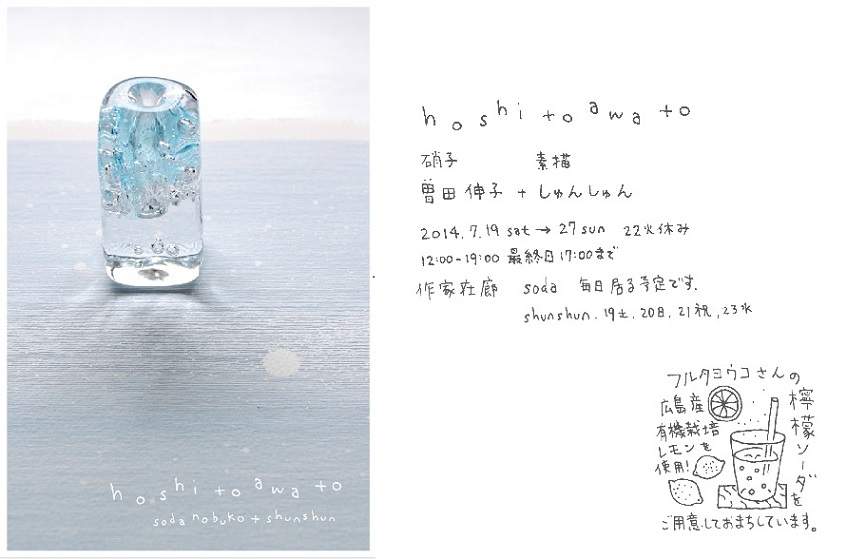 hoshi to awa to
soda nobuko + shunshun
hoshi to awa to
硝子 素描
曽田伸子 + しゅんしゅん
2014.7.19 sat → 27 sun 22火休み
12:00-19:00 最終日17:00まで
作家在廊 soda 毎日居る予定です.
shunshun. 19土. 20日. 21祝, 23水
フルタヨウコさんの
檸檬ソーダを
広島産
有機栽培
レモンを
使用!
ご用意しておまちしています。